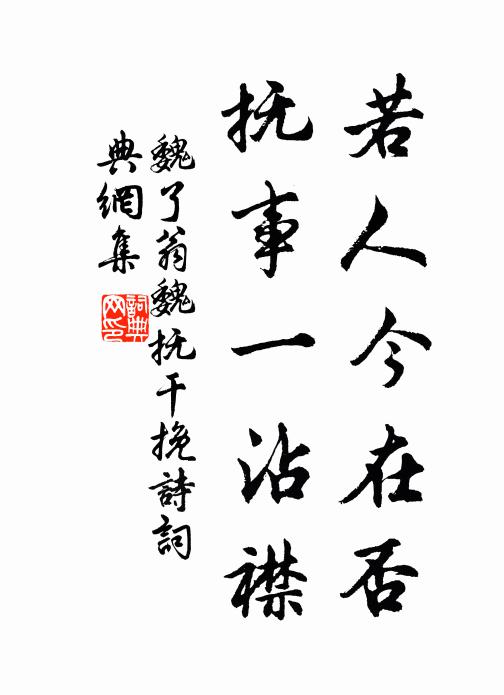 若人今在否
抚事一沾襟
魏了翁魏抚干挽詩詞
典網集
詞典网印